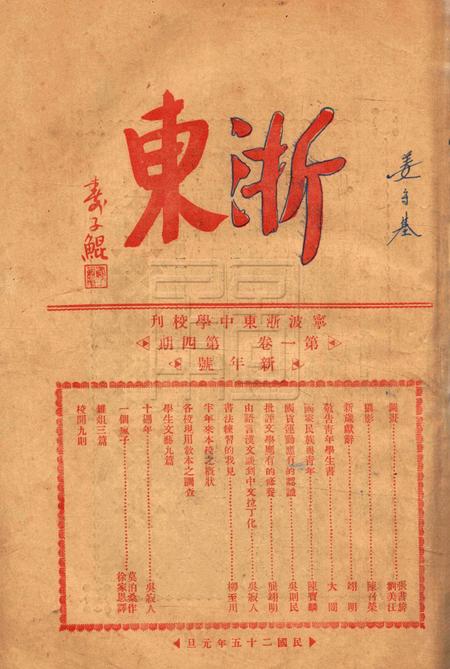 浙東
壽子鯤
姜子基
寧波浙東中學校刊
第一卷 第四期
新年號
圖畫 張書旂 劉美汪
攝影 陳得榮
新歲獻辭 翊明
敬告青年學生書 大闓
國家民族與青年 陳寶麟
國貨運動應有的認識 吳則民
批評文學應有的修養 吳翊明
由語言漢文談到中文拉丁化 吳寂人
書法練習的我見 柳至川
半年來本校之概狀
各校現用教本之調查
學生文藝九篇
十週年 吳寂人
一個瘋子 莫泊桑作 徐家恩譯
雜俎三篇
校聞九則
民國二十五年元旦